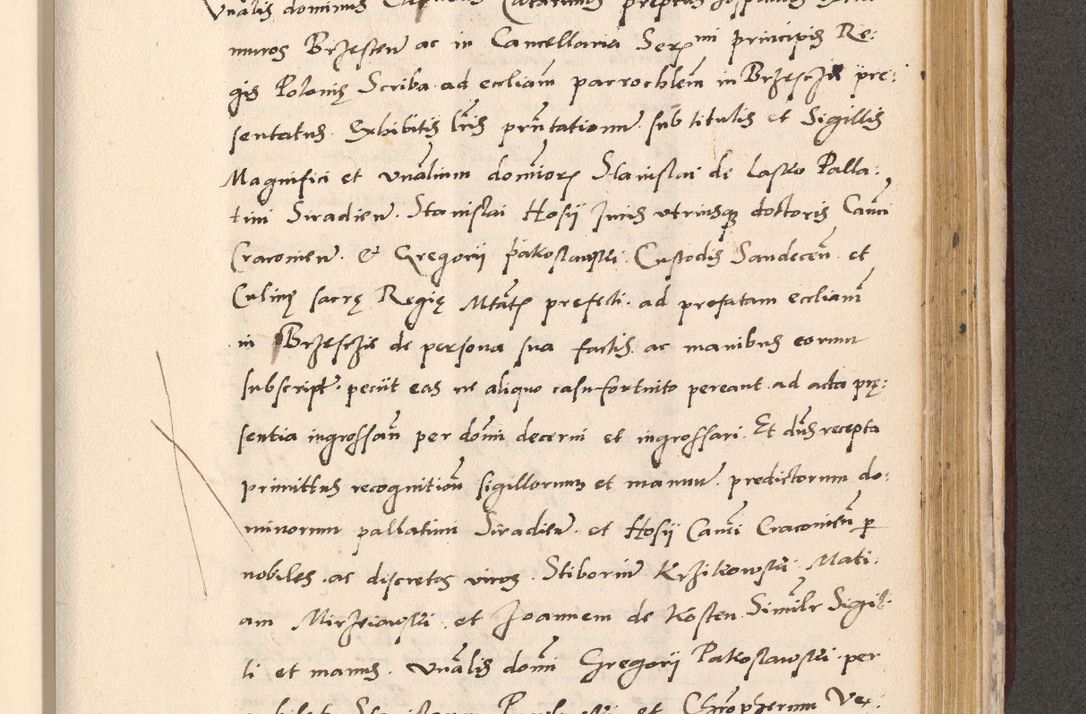 Vnalis dominus
muros Brzesten ac in Cancellaria Serx mi principis Re:
gis Polonię Scriba ad eccliam parrochlem in Brzesczie pre:
sentatus. Exhibitis lris pñtationum. sub titulis et Sigillis
Magnifici et Vnalium domiorx Stanislai de Lasko Palla:
tini Siradien. Stanislai Hosii Juris vtriusque doctoris Canci
Cracouien. & Gregorii pakoslawski Custodis Sandecen. et
Culinę sacrę Regię Mtatis prefecti. ad prefatam eccliam
in Brzesczie de persona sua factis ac manibus eorum
subscript. peciit eas ne aliquo casu fortuito pereant ad acta prę:
sentia ingrossan per domi decerni et ingrossari. Et dns recepta
primittus recognitiou sigillorum et manuu. predictorum do:
minorum pallatini Siradien. et Hosii Canci Cracouien per
nobiles ac discretos viros Stiborium Krzikowski Mati:
am Mirziowski et Joannem de Kosten. Similr Sigil:
li et manus. Vnalis domi Gregorii Pakoslawski per
et Chroperum Ve: